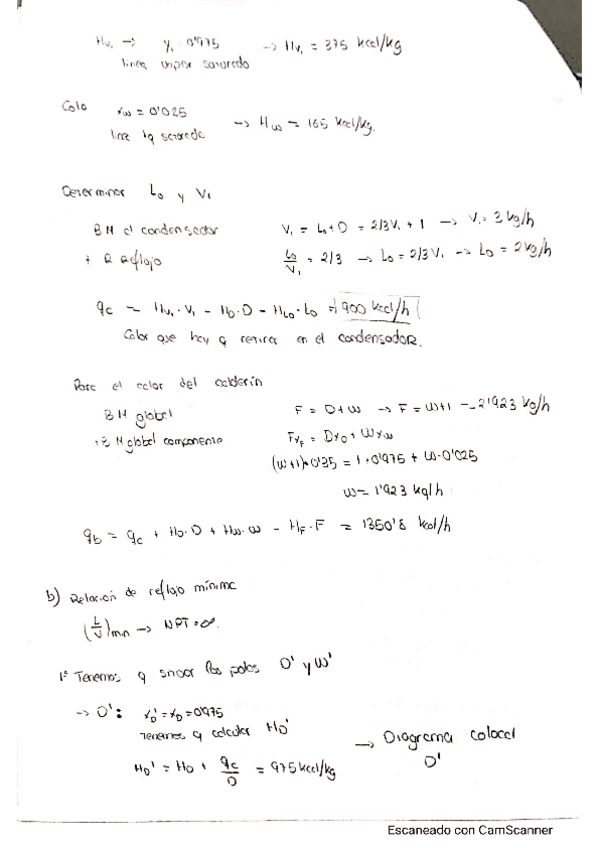 Hv₁ → y₁ 0'975 → Hv₁ = 375 kcal/kg
línea vapor saturado
Cola xw = 0'025 → Hw = 165 kcal/kg.
línea líq saturado
Determinar L₀ y V₁
BM al condensador V₁ = L₀ + D = 2/3V₁ + 1 → V₁ = 3 kg/h
+ R Reflujo L₀/V₁ = 2/3 → L₀ = 2/3V₁ → L₀ = 2 kg/h
qc = Hv₁·V₁ - H_D·D - H_L₀·L₀ = 900 kcal/h
Calor que hay q retirar en el condensador.
Para el calor del calderín
BM global F = D + W → F = W+1 → 2'923 kg/h
+BM global componente Fx_F = Dx_D + Wx_W
(W+1)·0'35 = 1·0'975 + W·0'025
W = 1'923 kg/h
qb = qc + H_D·D + Hw·W - H_F·F = 1350'8 kcal/h
b) Relación de reflujo mínima
(L/V)min → NPT = ∞.
1º Tenemos q situar los polos D' y W'
→ D': x_D' = x_D = 0'975
Tenemos q calcular H_D' → Diagrama colocal
H_D' = H_D + qc/D = 975 kcal/kg D'
Escaneado con CamScanner